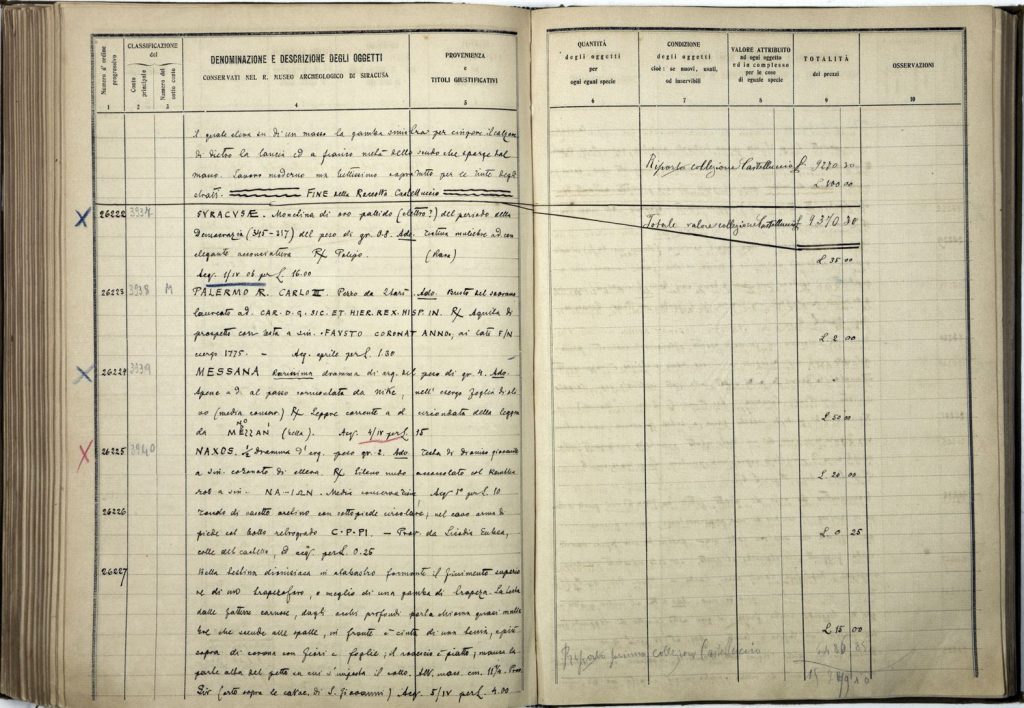 Numero d'ordine progressivo
CLASSIFICAZIONE
del
Conto principale
Numero del sotto conto
DENOMINAZIONE E DESCRIZIONE DEGLI OGGETTI
CONSERVATI NEL R. MUSEO ARCHEOLOGICO DI SIRACUSA
PROVENIENZA
e
TITOLI GIUSTIFICATIVI
1 2 3 4 5
di un masso la gamba per il
di dietro la lancia ed a fianco dello scudo che sparge dal
Lavoro moderno ma bellissimo per le tinte degli
FINE della Raccolta Castelluccio
26222 3937 SYRACUSÆ. Monetina di oro pallido (elettro?) del periodo della
Democrazia (345-317) del peso di gr. 0.8. Ado. Testina muliebre ad. con
elegante acconciatura ℞ Polipo. (Raro)
Acq. 1/IV 06 per L. 16.00
26223 3938 M PALERMO R. CARLO III. Pezzo da 2 tarì. Ado. Busto del sovrano
laureato a d. CAR. D. G. SIC. ET. HIER. REX. HISP. IN. ℞ Aquila di
prospetto con testa a sin. FAVSTO CORONAT ANNO, ai lati F/N
esergo 1775. - Acq. aprile per L. 1.30
26224 3939 MESSANA Rarissima dramma di arg. del peso di gr. 4. Ado.
Apene a d. al passo coronata da Nike, nell'esergo foglia di oli
vo (media conserv.) ℞ Leppre corrente a d circondata della leggen
da MEΣΣAN NO (bella). Acq. 4/IV per L. 15
26225 3940 NAXOS. 1/2 dramma d'arg. peso gr. 2. Ado. Testa di Dioniso giovanile
a sin. coronato di ellera. ℞ Sileno nudo accoccolato col
a sin. NA-IΩN. Media conservazione Acq. per L. 10
26226 Fondo di vasetto aretino con sottopiede circolare; nel cavo orma di
piede col bollo retrogrado C·P·PI. - Prov. da Licodia Eubea,
colle del castello, acq. per L. 0.25
26227 Bella testina dionisiaca in alabastro formante il finimento superio
re di uno trapezoforo, o meglio di una gamba di trapeza. La testa
dalle fattezze carnose, dagli occhi profondi porta chioma quasi mulie
bre che scende alle spalle, in fronte è cinta di una benda, e più
sopra di corona con fiori e foglie; il rovescio è piatto; manca la
parte alta del petto su cui s'imposta il collo. Alt. mass. cm. 11½. Prov.
Sir. (orto sopra le catac. di S. Giovanni) Acq. 5/IV per L. 4.00
QUANTITÀ
degli oggetti
per
ogni egual specie
CONDIZIONE
degli oggetti
cioè: se nuovi, usati,
od inservibili
VALORE ATTRIBUITO
ad ogni oggetto
ed in complesso
per le cose
di eguale specie
TOTALITÀ
dei prezzi
OSSERVAZIONI
6 7 8 9 10
Riporto collezione Castelluccio L. 9270 30
L. 100.00
Totale valore collezione Castelluccio L. 9370 30
L. 35 00
L. 2 00
L. 50 00
L. 20 00
L. 0 25
L. 15 00
Riporto somma collezione Castelluccio